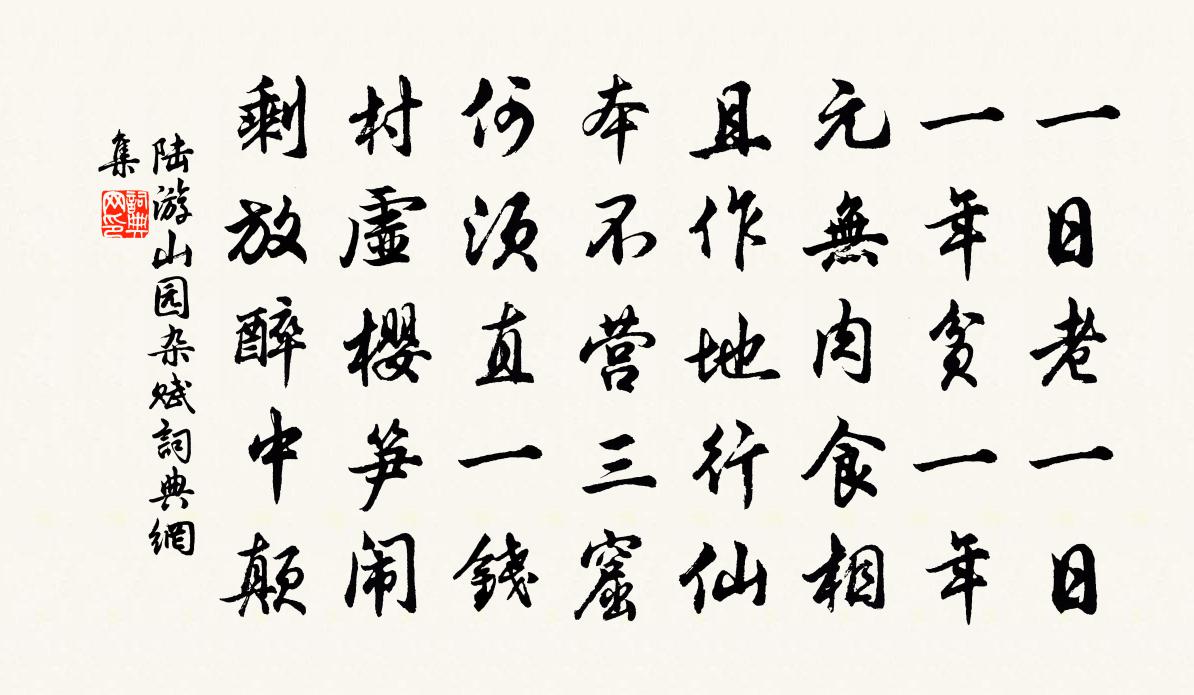 一日老一日
一年贫一年
元無肉食相
且作地行仙
本不营三窟
何須直一錢
村虚櫻笋闹
剩放醉中颠
陆游山园杂赋詞典網
集
詞典网印